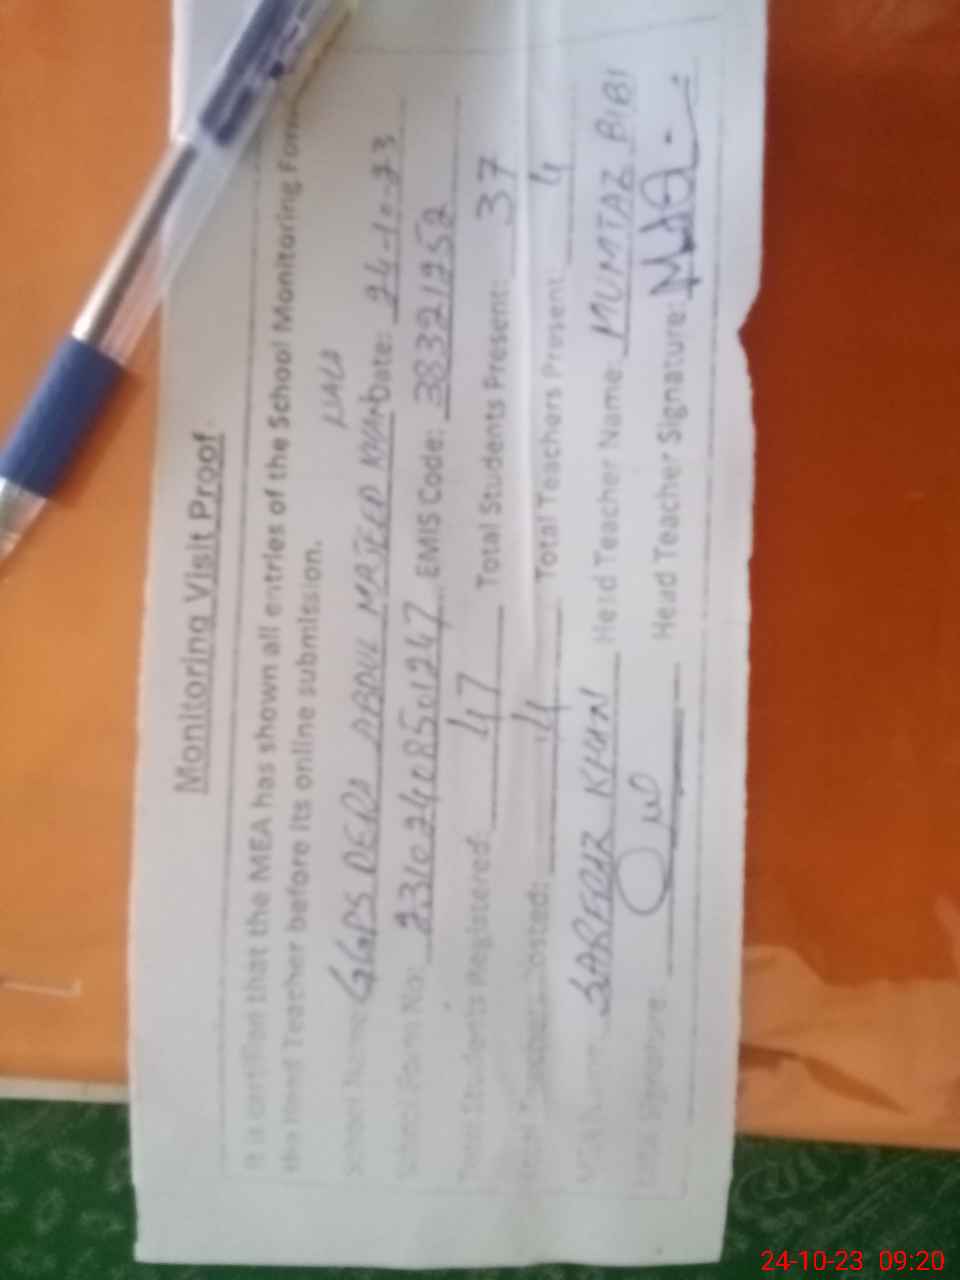 Monitoring Visit Proof
It is certified that the MEA has shown all entries of the School Monitoring Form
the Head Teacher before its online submission.
School Name: GGPS DERA ABDUL MAJEED KHAN Date: 24-10-23
School Form No: 23102408501247 EMIS Code: 38321252
Total Students Registered: 47 Total Students Present: 37
Total Teachers Posted: 4 Total Teachers Present: 4
MEA Name: SARFRAZ KHAN Head Teacher Name: MUMTAZ BIBI
MEA Signature: Head Teacher Signature:
24-10-23 09:20